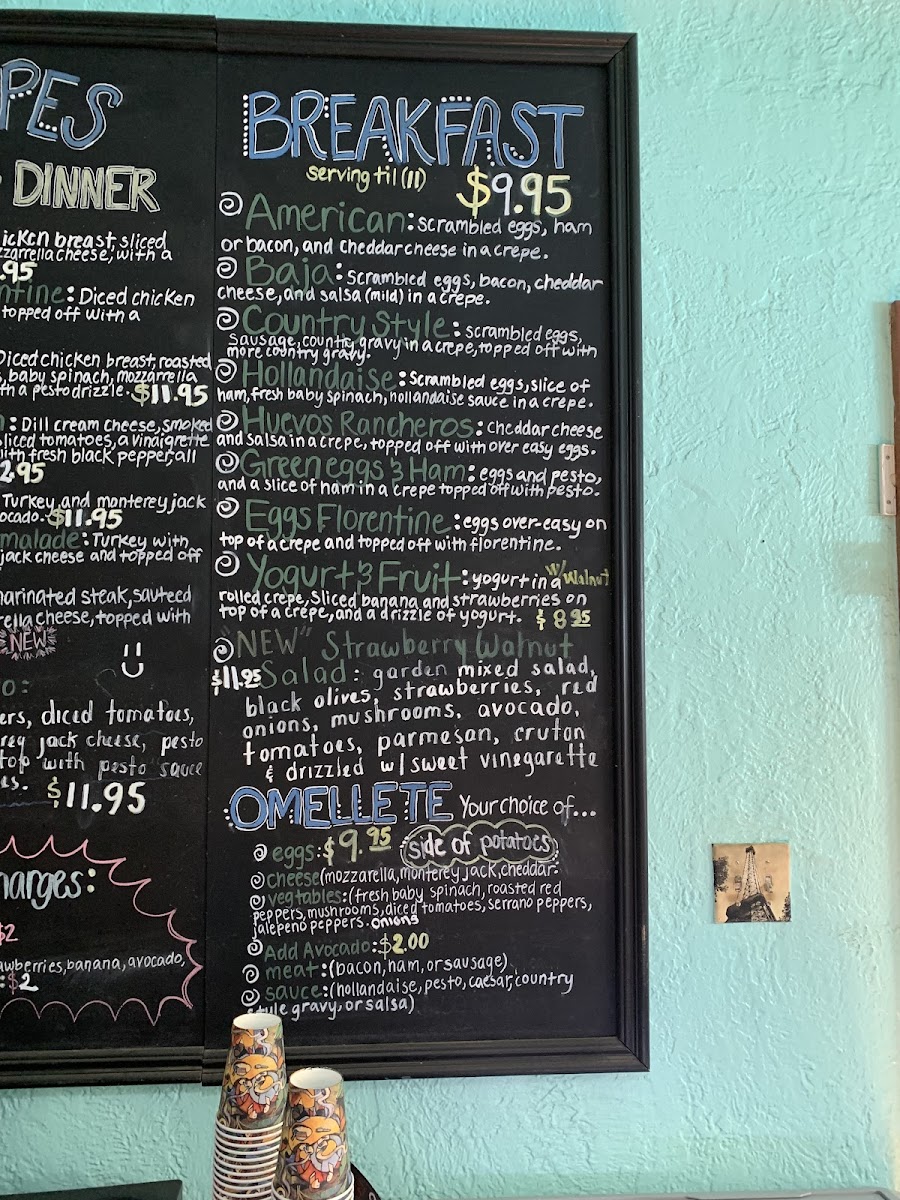 PES
DINNER
icken breast, sliced
zzarella cheese, with a
.95
ntine: Diced chicken
topped off with a
Diced chicken breast, roasted
, baby spinach, mozzarella
th a pesto drizzle. $11.95
: Dill cream cheese, smoked
sliced tomatoes, a vinaigrette
with fresh black pepper, all
2.95
Turkey, and monterey jack
ocado. $11.95
malade: Turkey with
jack cheese and topped off
marinated steak, sauteed
rella cheese, topped with
NEW
o:
ers, diced tomatoes,
rey jack cheese, pesto
top with pesto sauce
es. $11.95
harges:
$2
awberries, banana, avocado,
: $2
BREAKFAST
serving til (11) $9.95
American: scrambled eggs, ham
or bacon, and cheddar cheese in a crepe.
Baja: Scrambled eggs, bacon, cheddar
cheese, and salsa (mild) in a crepe.
Country Style: scrambled eggs,
sausage, country gravy in a crepe, topped off with
more country gravy.
Hollandaise: Scrambled eggs, slice of
ham, fresh baby spinach, hollandaise sauce in a crepe.
Huevos Rancheros: cheddar cheese
and salsa in a crepe, topped off with over easy eggs.
Green eggs & Ham: eggs and pesto,
and a slice of ham in a crepe topped off with pesto.
Eggs Florentine: eggs over-easy on
top of a crepe and topped off with florentine.
Yogurt & Fruit: yogurt in a w/ Walnut
rolled crepe, Sliced banana and strawberries on
top of a crepe, and a drizzle of yogurt. $8.95
"NEW" Strawberry Walnut
$11.95 Salad: garden mixed salad,
black olives, strawberries, red
onions, mushrooms, avocado,
tomatoes, parmesan, cruton
& drizzled w/ sweet vinegarette
OMELLETE Your choice of...
eggs: $9.95 side of potatoes
cheese (mozzarella, monterey jack, cheddar.
vegtables: (fresh baby spinach, roasted red
peppers, mushrooms, diced tomatoes, serrano peppers,
jalepeno peppers. onions
Add Avocado: $2.00
meat: (bacon, ham, or sausage)
sauce: (hollandaise, pesto, caesar, country
style gravy, or salsa)